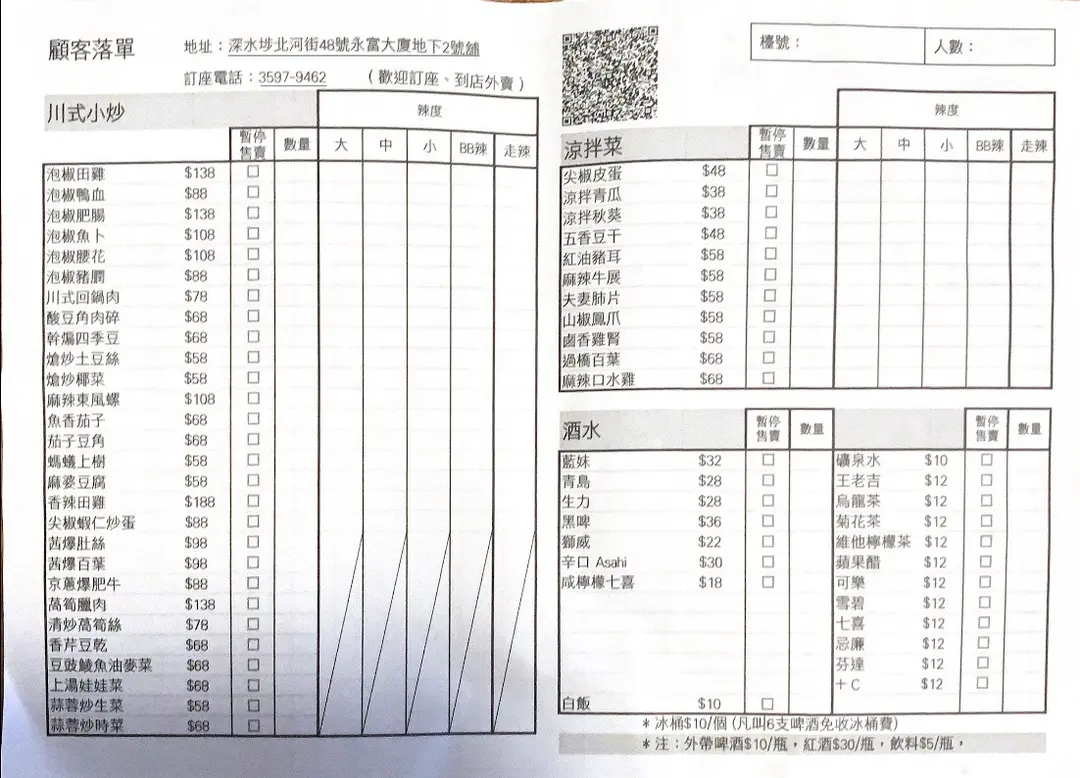 顧客落單
地址：深水埗北河街48號永富大廈地下2號舖
訂座電話：3597-9462 （歡迎訂座、到店外賣）
川式小炒 暫停售賣 數量 辣度 大 中 小 BB辣 走辣
泡椒田雞 $138
泡椒鴨血 $88
泡椒肥腸 $138
泡椒魚卜 $108
泡椒腰花 $108
泡椒豬膶 $88
川式回鍋肉 $78
酸豆角肉碎 $68
幹煸四季豆 $68
熗炒土豆絲 $58
熗炒椰菜 $58
麻辣東風螺 $108
魚香茄子 $68
茄子豆角 $68
螞蟻上樹 $58
麻婆豆腐 $58
香辣田雞 $188
尖椒蝦仁炒蛋 $88
茜爆肚絲 $98
茜爆百葉 $98
京蔥爆肥牛 $88
萵筍臘肉 $138
清炒萵筍絲 $78
香芹豆乾 $68
豆豉鯪魚油麥菜 $68
上湯娃娃菜 $68
蒜蓉炒生菜 $58
蒜蓉炒時菜 $68
檯號： 人數：
涼拌菜 暫停售賣 數量 辣度 大 中 小 BB辣 走辣
尖椒皮蛋 $48
涼拌青瓜 $38
涼拌秋葵 $38
五香豆干 $48
紅油豬耳 $58
麻辣牛展 $58
夫妻肺片 $58
山椒鳳爪 $58
鹵香雞腎 $58
過橋百葉 $68
麻辣口水雞 $68
酒水 暫停售賣 數量 暫停售賣 數量
藍妹 $32 礦泉水 $10
青島 $28 王老吉 $12
生力 $28 烏龍茶 $12
黑啤 $36 菊花茶 $12
獅威 $22 維他檸檬茶 $12
辛口 Asahi $30 蘋果醋 $12
咸檸檬七喜 $18 可樂 $12
雪碧 $12
七喜 $12
忌廉 $12
芬達 $12
＋C $12
白飯 $10
＊冰桶$10/個（凡叫6支啤酒免收冰桶費）
＊注：外帶啤酒$10/瓶，紅酒$30/瓶，飲料$5/瓶，